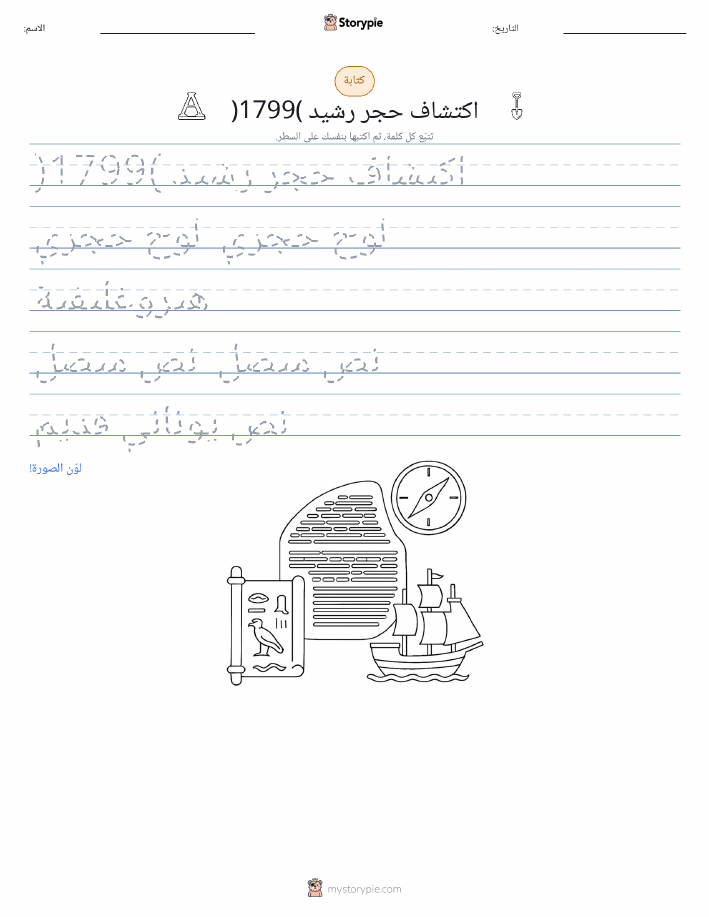 التاريخ:
الاسم:
Storypie
كتابة
اكتشاف حجر رشيد )1799(
تتبّع كل كلمة، ثم اكتبها بنفسك على السطر.
اكتشاف حجر رشيد )1799(
لوح حجري لوح حجري
هيروغليفية
نص نص
نص يوناني قديم
لوّن الصورة!
mystorypie.com